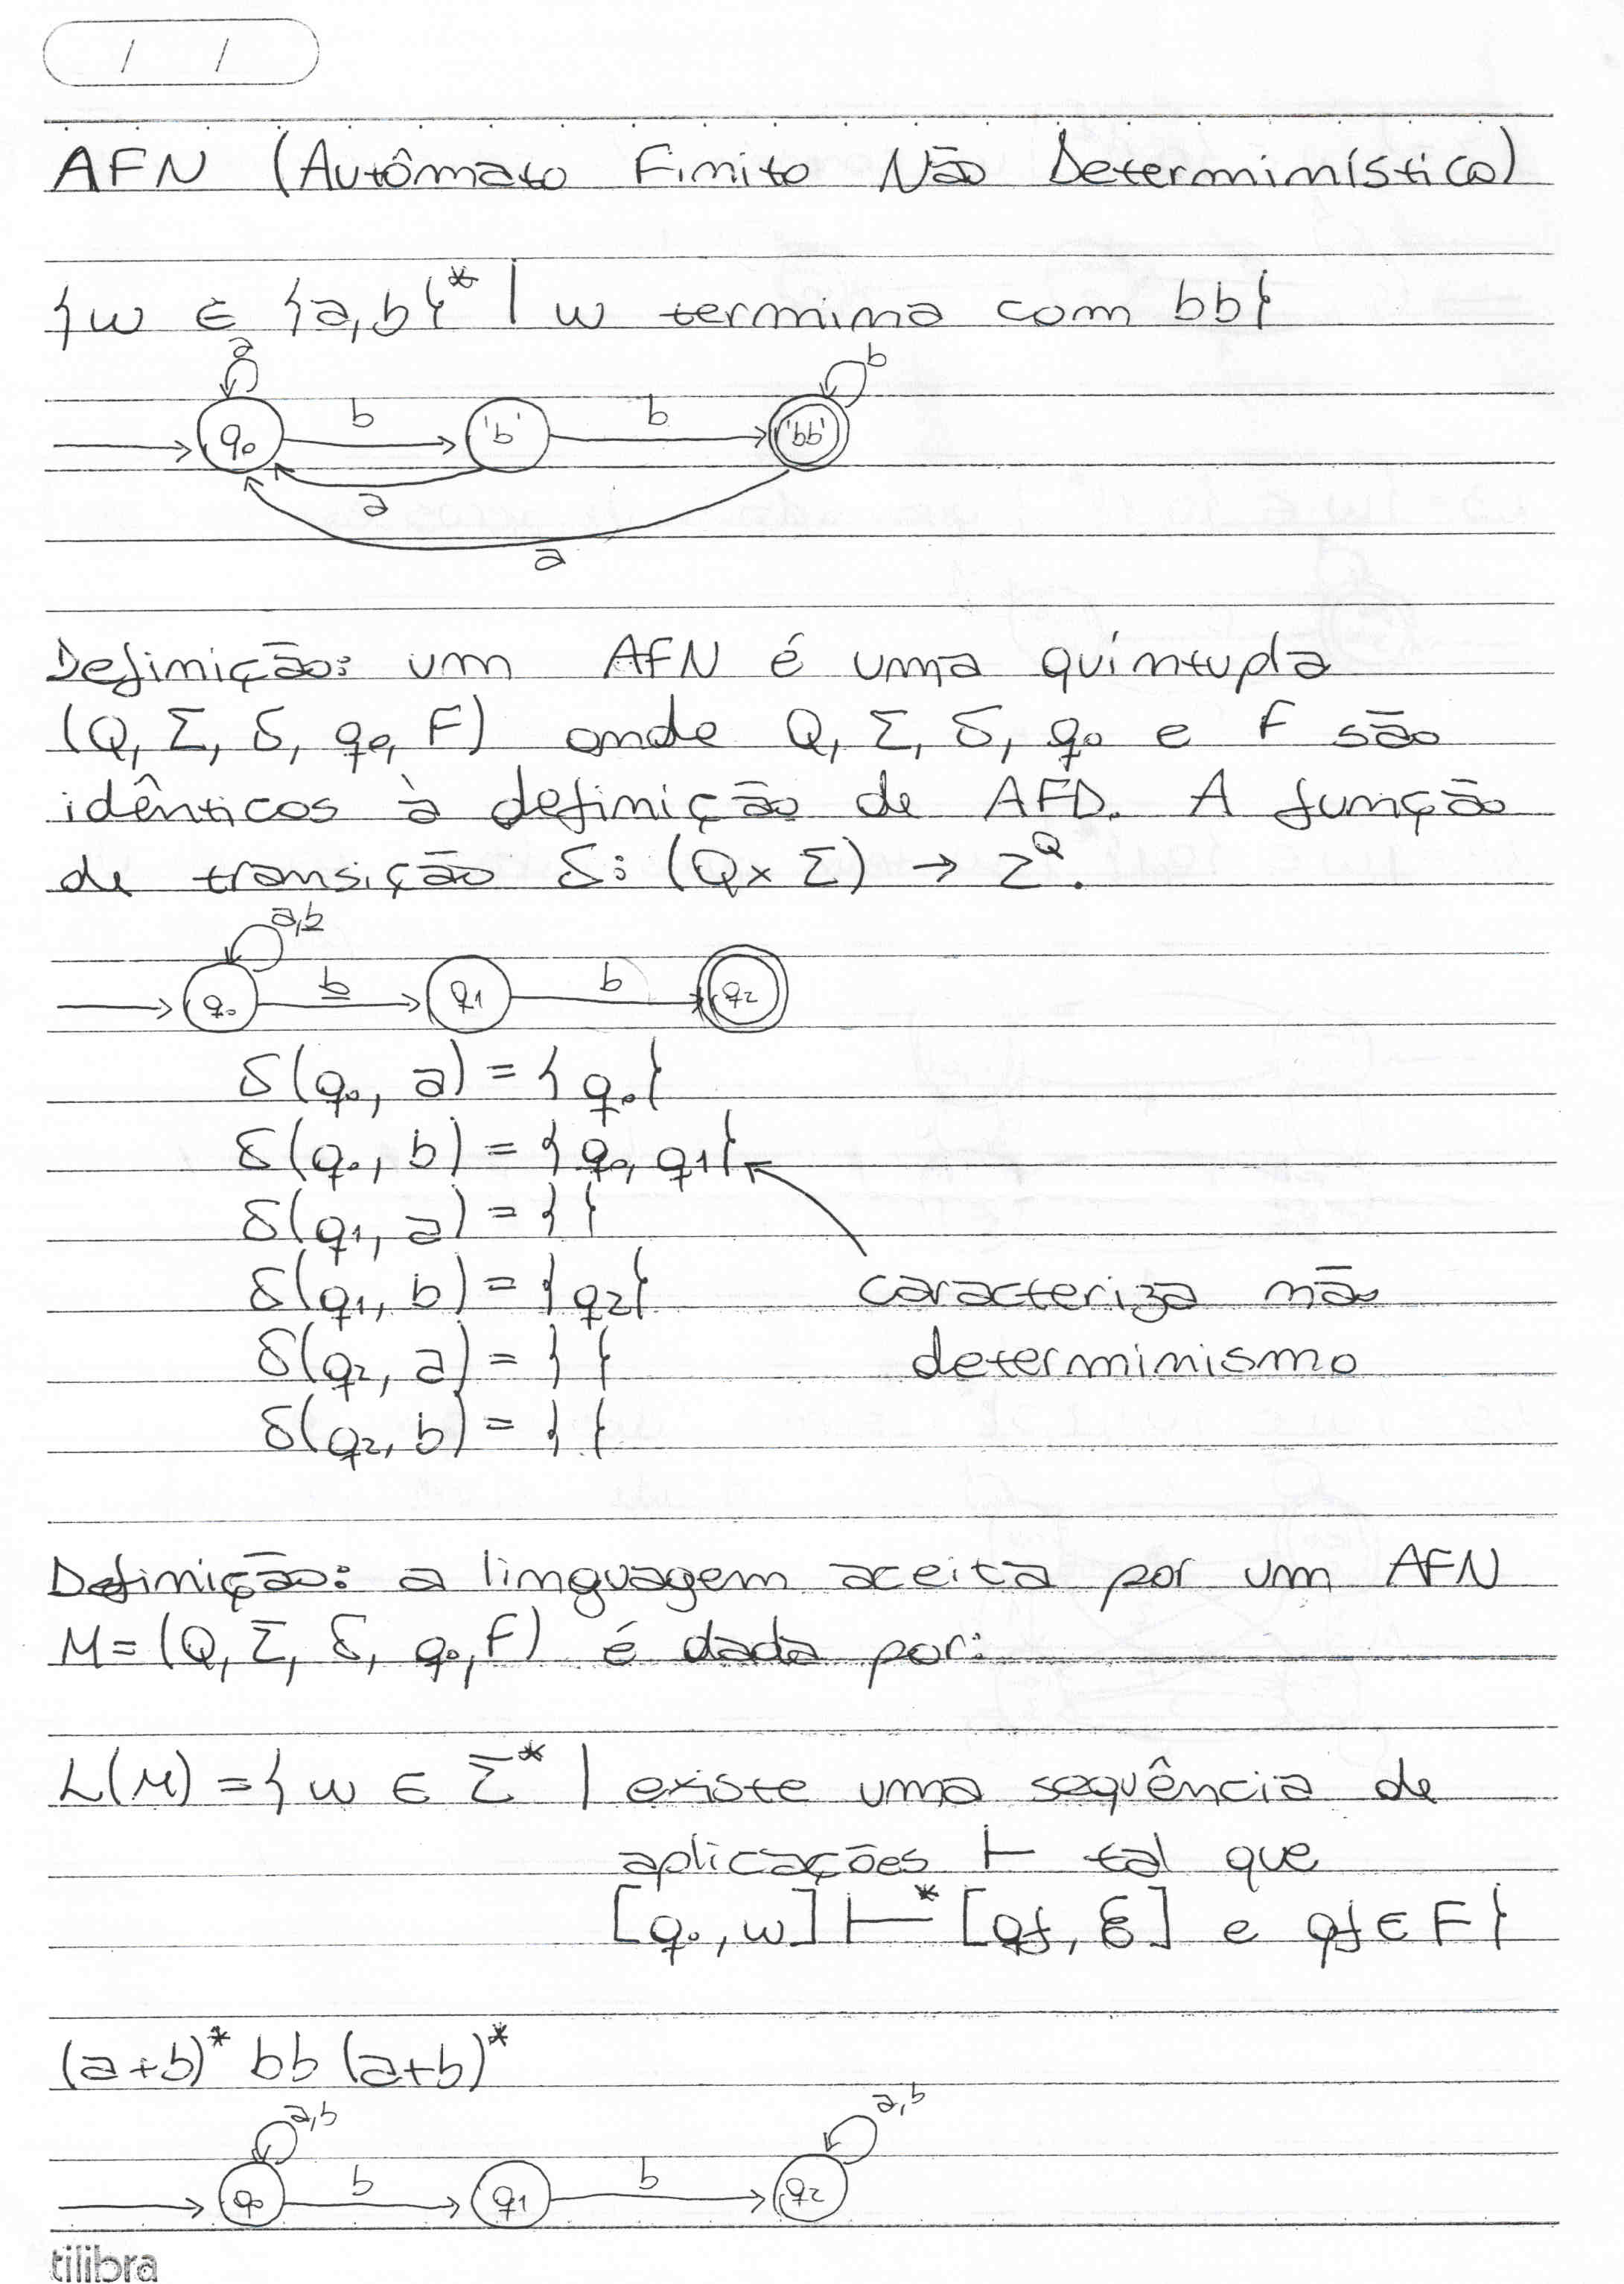 / /
AFN (Autômato Finito Não Determinístico)
{w ∈ {a,b}* | w termina com bb}
a b
q₀ b 'b' b 'bb'
a
a
Definição: um AFN é uma quíntupla
(Q, Σ, δ, q₀, F) onde Q, Σ, δ, q₀ e F são
idênticos à definição de AFD. A função
de transição δ: (Q x Σ) → 2^Q.
a,b
q₀ b q₁ b q₂
δ(q₀, a) = {q₀}
δ(q₀, b) = {q₀, q₁}
δ(q₁, a) = { }
δ(q₁, b) = {q₂} caracteriza não
δ(q₂, a) = { } determinismo
δ(q₂, b) = { }
Definição: a linguagem aceita por um AFN
M = (Q, Σ, δ, q₀, F) é dada por:
L(M) = {w ∈ Σ* | existe uma sequência de
aplicações ⊢ tal que
[q₀, w] ⊢* [qf, ε] e qf ∈ F}
(a+b)* bb (a+b)*
a,b a,b
q₀ b q₁ b q₂
tilibra